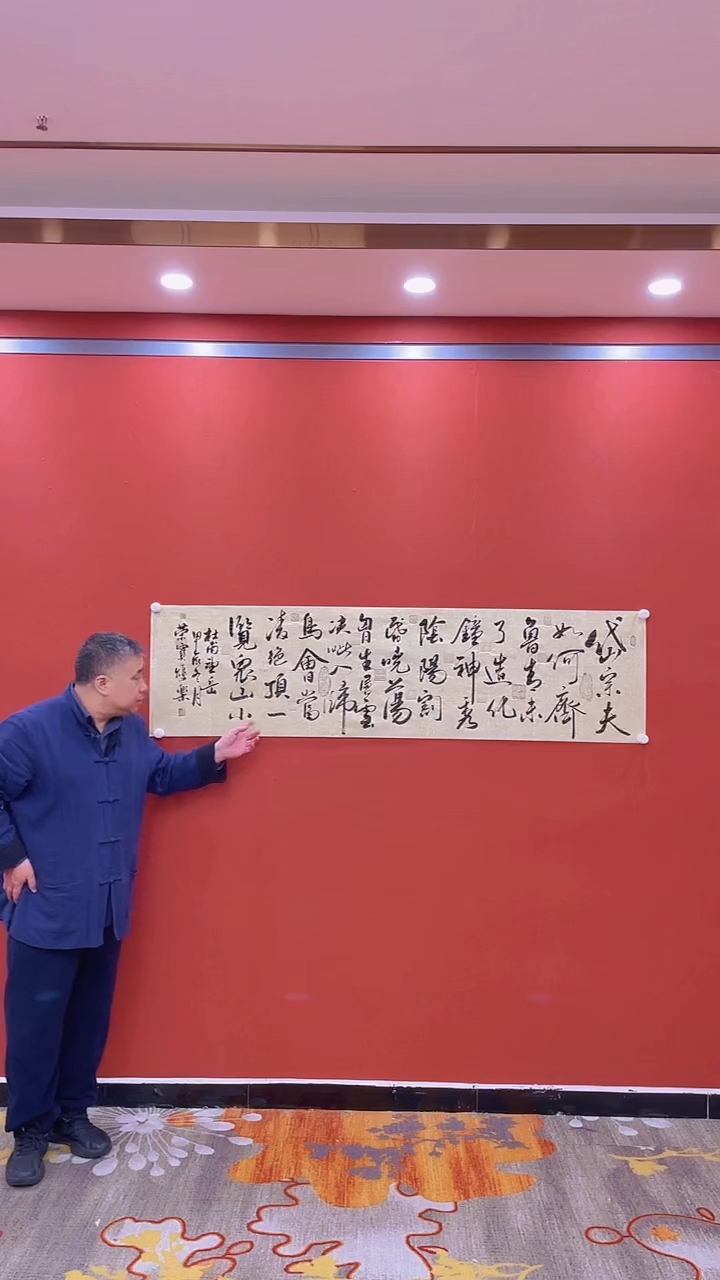 岱宗夫
如何齊
魯青未
了造化
鐘神秀
陰陽割
昏曉蕩
胷生層雲
决眥入歸
鳥會當
凌絕頂一
覽眾山小
杜甫望岳
甲辰冬月
榮寶